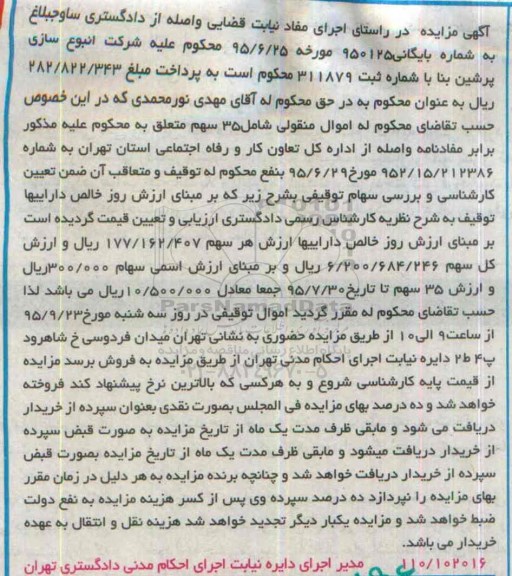 آگهی مزایده  در راستای اجرای مفاد نیابت قضایی واصله از دادگستری ساوجبلاغ
به شماره بایگانی۹۵۰۱۲۵ مورخه ۹۵/۶/۲۵ محکوم علیه شرکت انبوع سازی
پرشین بنا با شماره ثبت ۳۱۱۸۷۹ محکوم است به پرداخت مبلغ ۲۸۲/۸۲۲/۳۴۳
ریال به عنوان محکوم به در حق محکوم له آقای مهدی نورمحمدی که در این خصوص
حسب تقاضای محکوم له اموال منقولی شامل۳۵ سهم متعلق به محکوم علیه مذکور
برابر مفادنامه واصله از اداره کل تعاون کار و رفاه اجتماعی استان تهران به شماره
۹۵۲/۱۵/۲۱۲۳۸۶ مورخ۹۵/۶/۲۹ بنفع محکوم له توقیف و متعاقب آن ضمن تعیین
کارشناسی و بررسی سهام توقیفی بشرح زیر که بر مبنای ارزش روز خالص داراییها
توقیف به شرح نظریه کارشناس رسمی دادگستری ارزیابی و تعیین قیمت گردیده است
بر مبنای ارزش روز خالص داراییها ارزش هر سهم ۱۷۷/۱۶۲/۴۰۷ ریال و ارزش
کل سهم ۶/۲۰۰/۶۸۴/۲۴۶ ریال و بر مبنای ارزش اسمی سهام ۳۰۰/۰۰۰ریال
و ارزش ۳۵ سهم تا تاریخ۹۵/۷/۳۰ جمعا معادل ۱۰/۵۰۰/۰۰۰ریال می باشد لذا
حسب تقاضای محکوم له مقرر گردید اموال توقیفی در روز سه شنبه مورخ۹۵/۹/۲۳
از ساعت۹ الی۱۰ از طریق مزایده حضوری به نشانی تهران میدان فردوسی خ شاهرود
پ۴ ط۲ دایره نیابت اجرای احکام مدنی تهران از طریق مزایده به فروش برسد مزایده
از قیمت پایه کارشناسی شروع و به هرکسی که بالاترین نرخ پیشنهاد کند فروخته
خواهد شد و ده درصد بهای مزایده فی المجلس بصورت نقدی بعنوان سپرده از خریدار
دریافت می شود و مابقی ظرف مدت یک ماه از تاریخ مزایده به صورت قبض سپرده
از خریدار دریافت میشود و مابقی ظرف مدت یک ماه از تاریخ مزایده بصورت قبض
سپرده از خریدار دریافت خواهد شد و چنانچه برنده مزایده به هر دلیل در زمان مقرر
بهای مزایده را نپردازد ده درصد سپرده وی پس از کسر هزینه مزایده به نفع دولت
ضبط خواهد شد و مزایده یکبار دیگر تجدید خواهد شد هزینه نقل و انتقال به عهده
خریدار می باشد.
۱۱۰/۱۰۲۰۱۶ مدیر اجرای دایره نیابت اجرای احکام مدنی دادگستری تهران
ParsNamadData
۰۲۱-۸۸۳۴۹۶۷۰-۵